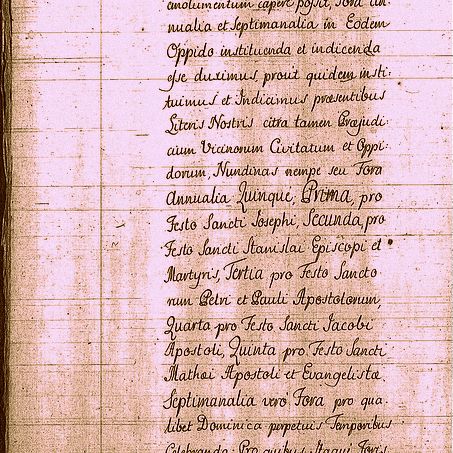 emolumentum capere possit, Fora An-
nualia et Septimanalia in Eodem
Oppido instituenda et indicenda
esse duximus prout quidem insti-
tuimus et Indicimus præsentibus
Literis Nostris citra tamen Præjudi-
cium Vicinorum Civitatum et Oppi-
dorum, Nundinas nempe seu Fora
Annualia Quinque, Prima, pro
Festo Sancti Iosephi, Secunda, pro
Festo Sancti Stanislai Episcopi et
Martyris, Tertia pro Festo Sancto
rum Petri et Pauli Apostolorum,
Quarta pro Festo Sancti Iacobi
Apostoli, Quinta pro Festo Sancti
Mathæi Apostoli et Evangelistæ
Septimanalia vero Fora pro qua
libet Dominica perpetuis Temporibus
Celebranda. Pro quibus itaqui Foris